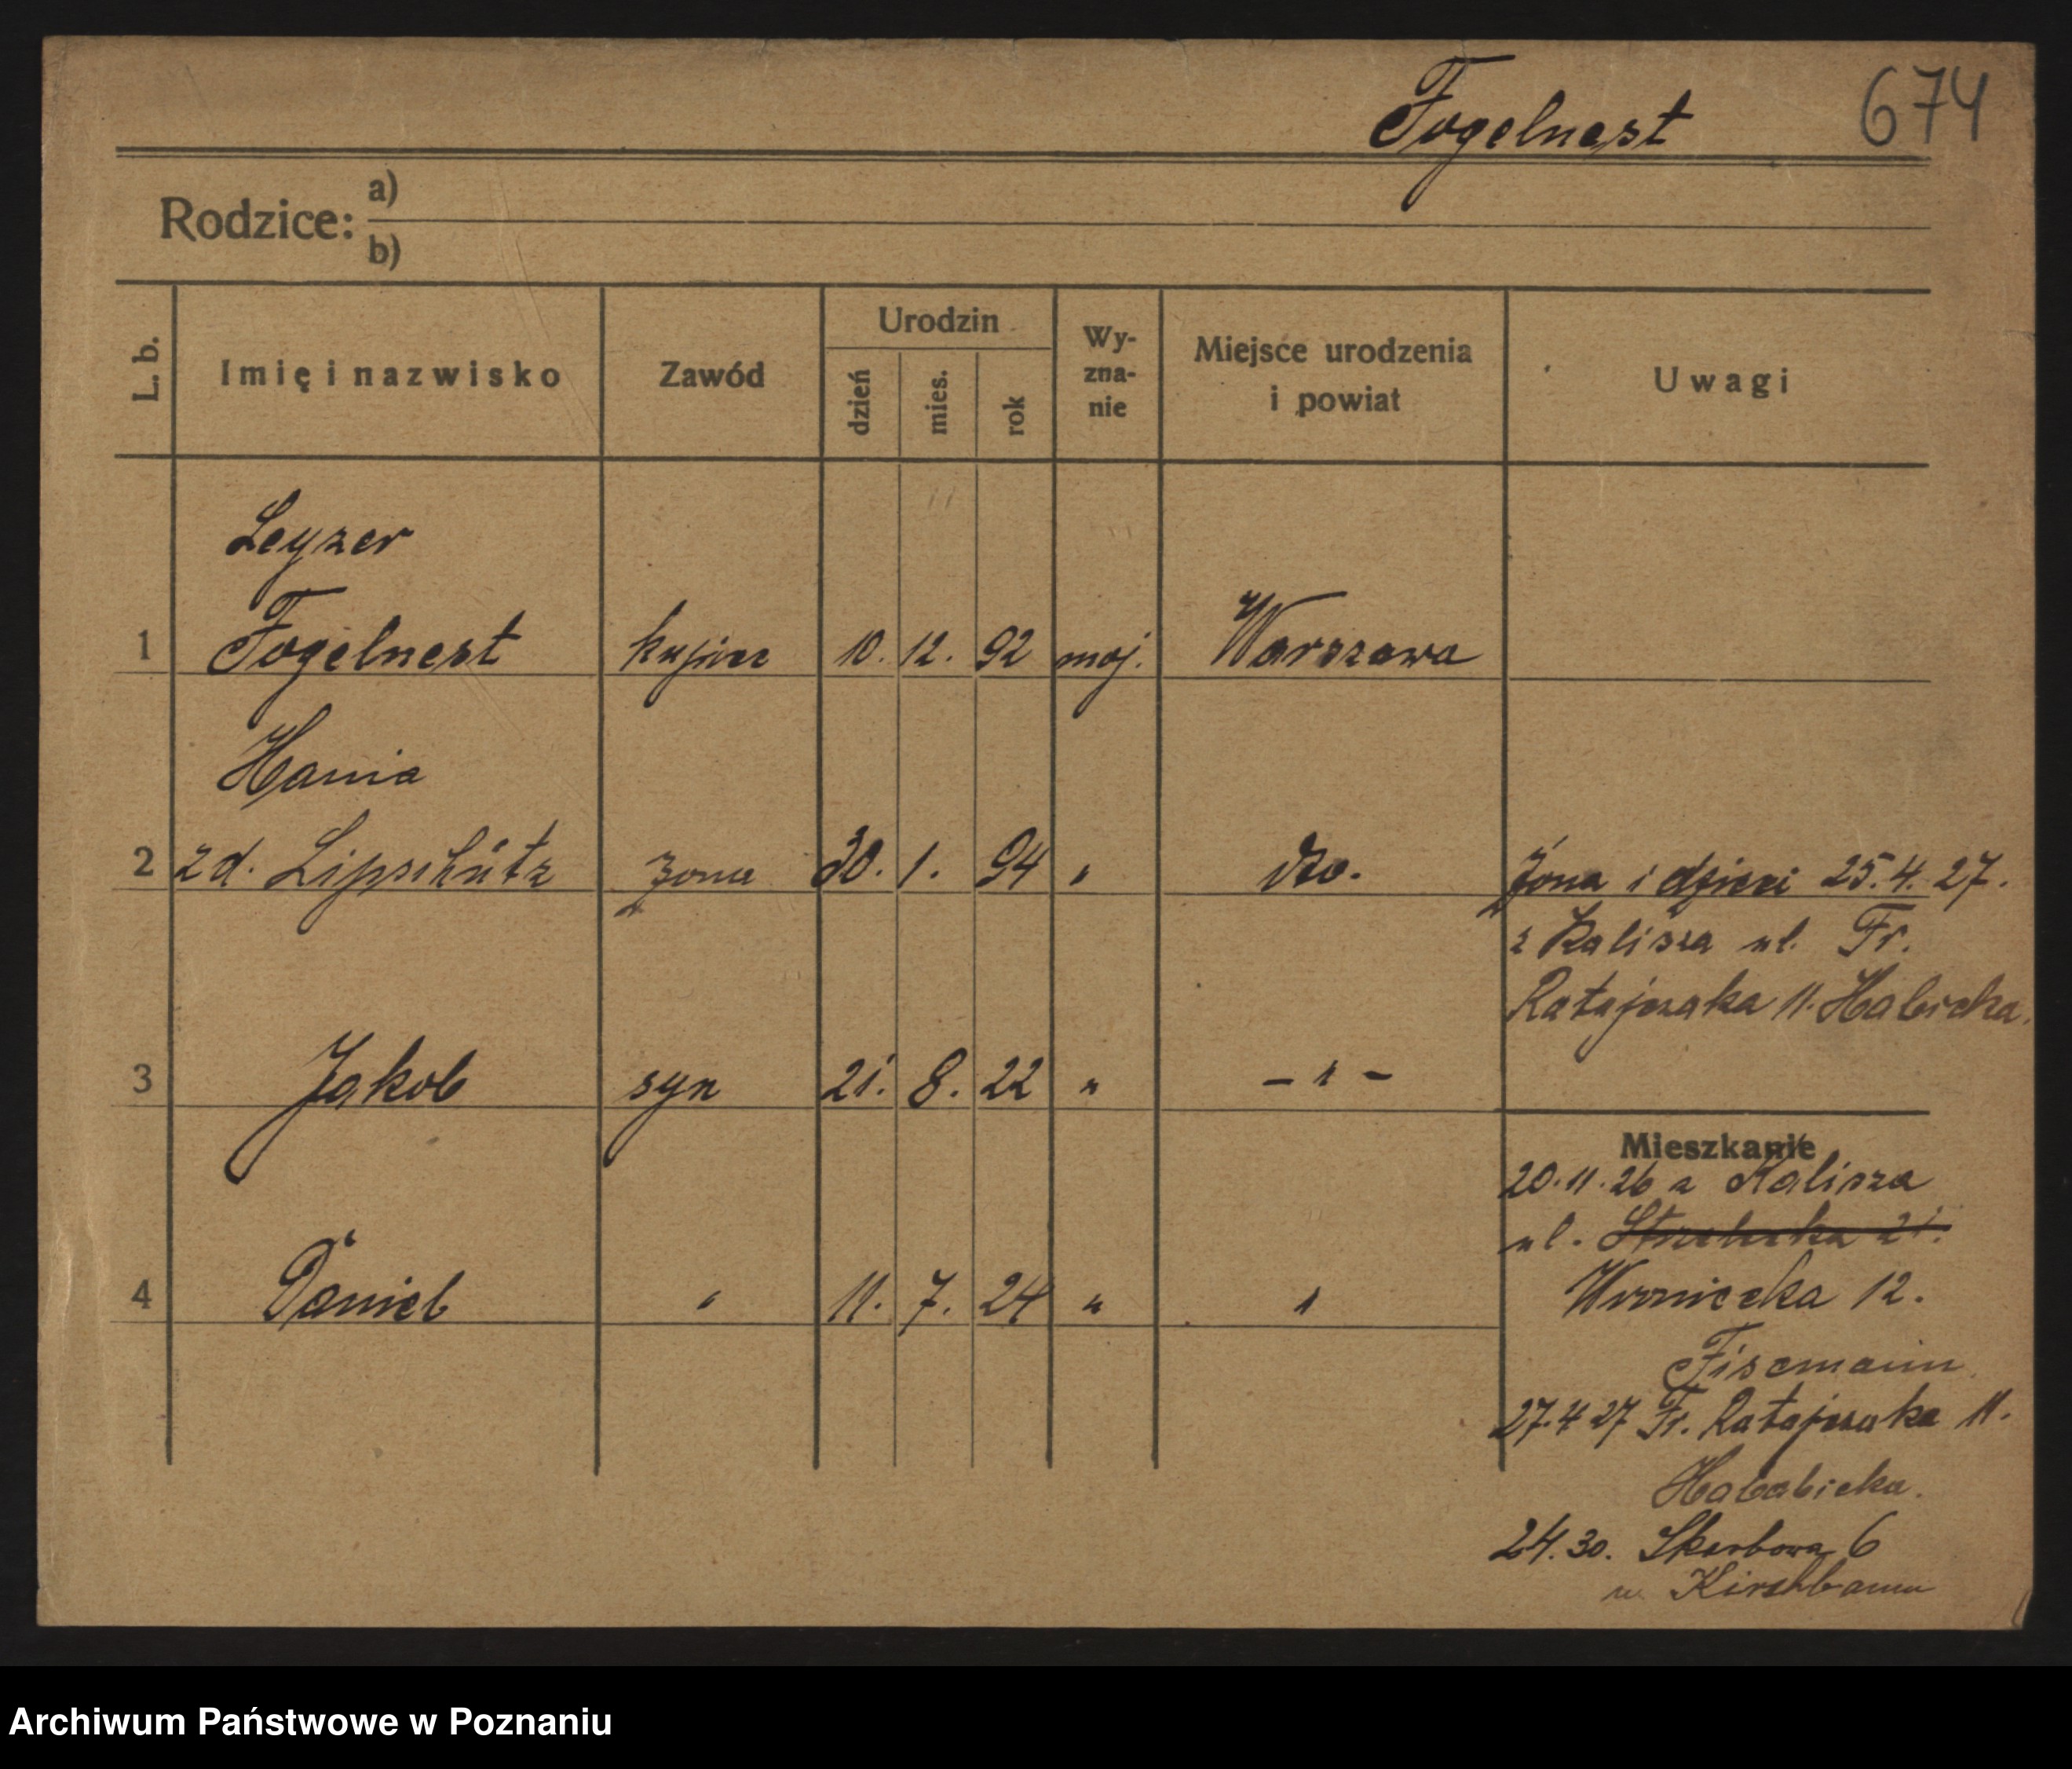 Fogelnest 674
Rodzice: a)
b)
L. b.
Imię i nazwisko
Zawód
Urodzin
dzień
mies.
rok
Wy-
zna-
nie
Miejsce urodzenia
i powiat
Uwagi
Leyzer
1 Fogelnest kupiec 10. 12. 92 moj. Warszawa
Hania
2 zd. Lipschütz żona 30. 1. 94 " dto. Żona i dzieci 25.4.27.
z Kalisza ul. Fr.
Ratajczaka 11.
3 Jakob syn 21. 8. 22 " - " -
Mieszkanie
20.11.26 z Kalisza
ul. Strzelecka 21.
4 Daniel " 11. 7. 24 " "
Wroniecka 12.
Fiscmann
27.4 27 Fr. Ratajczaka 11.
24.30. Skarbowa 6
Kirschbaum
Archiwum Państwowe w Poznaniu